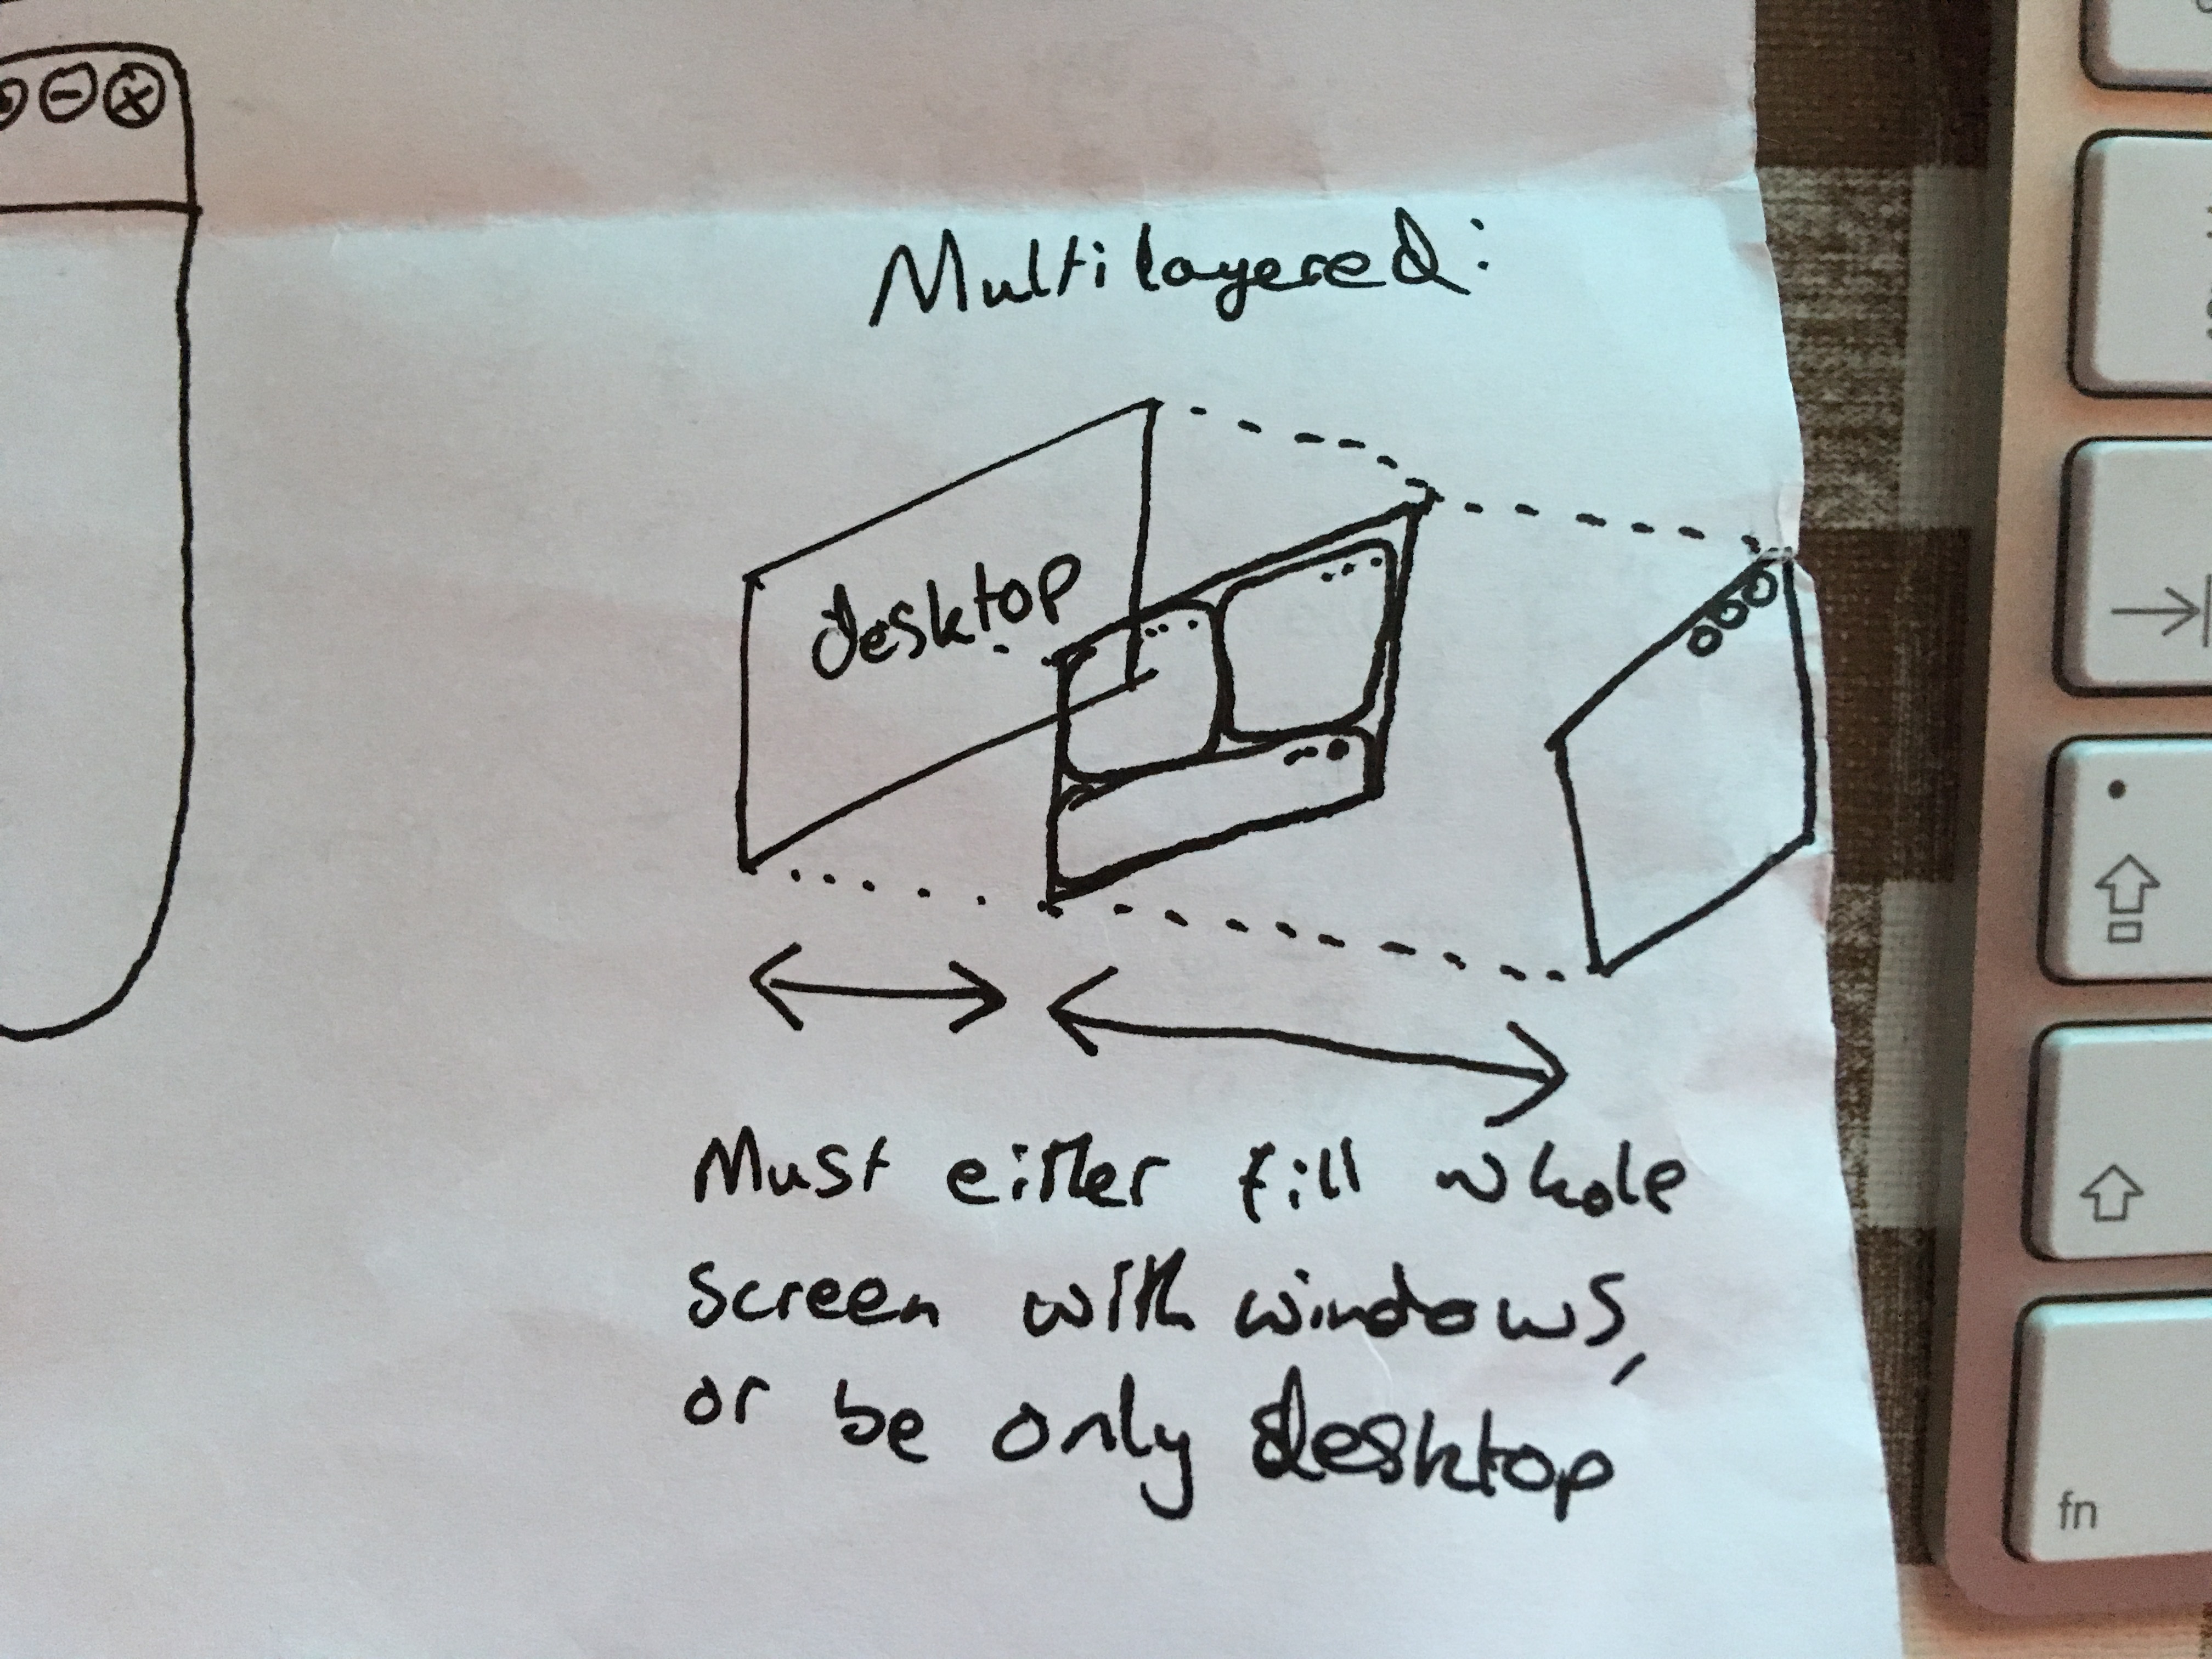 Multilayered:
desktop
Must either fill whole
screen with windows,
or be only desktop
fn